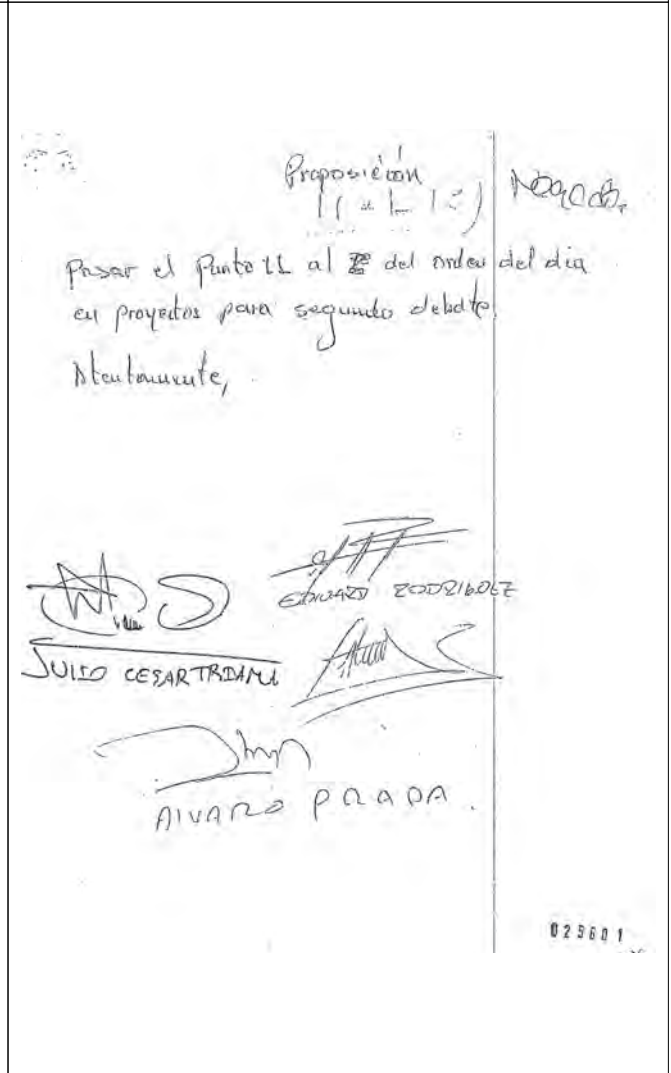 Proposición
Negada.
Pasar el Punto 11 al del orden del dia
en proyectos para segundo debate
Atentamente,
EDWARD RODRIGUEZ
JULIO CESAR TRIANA
ALVARO PRADA.
025601